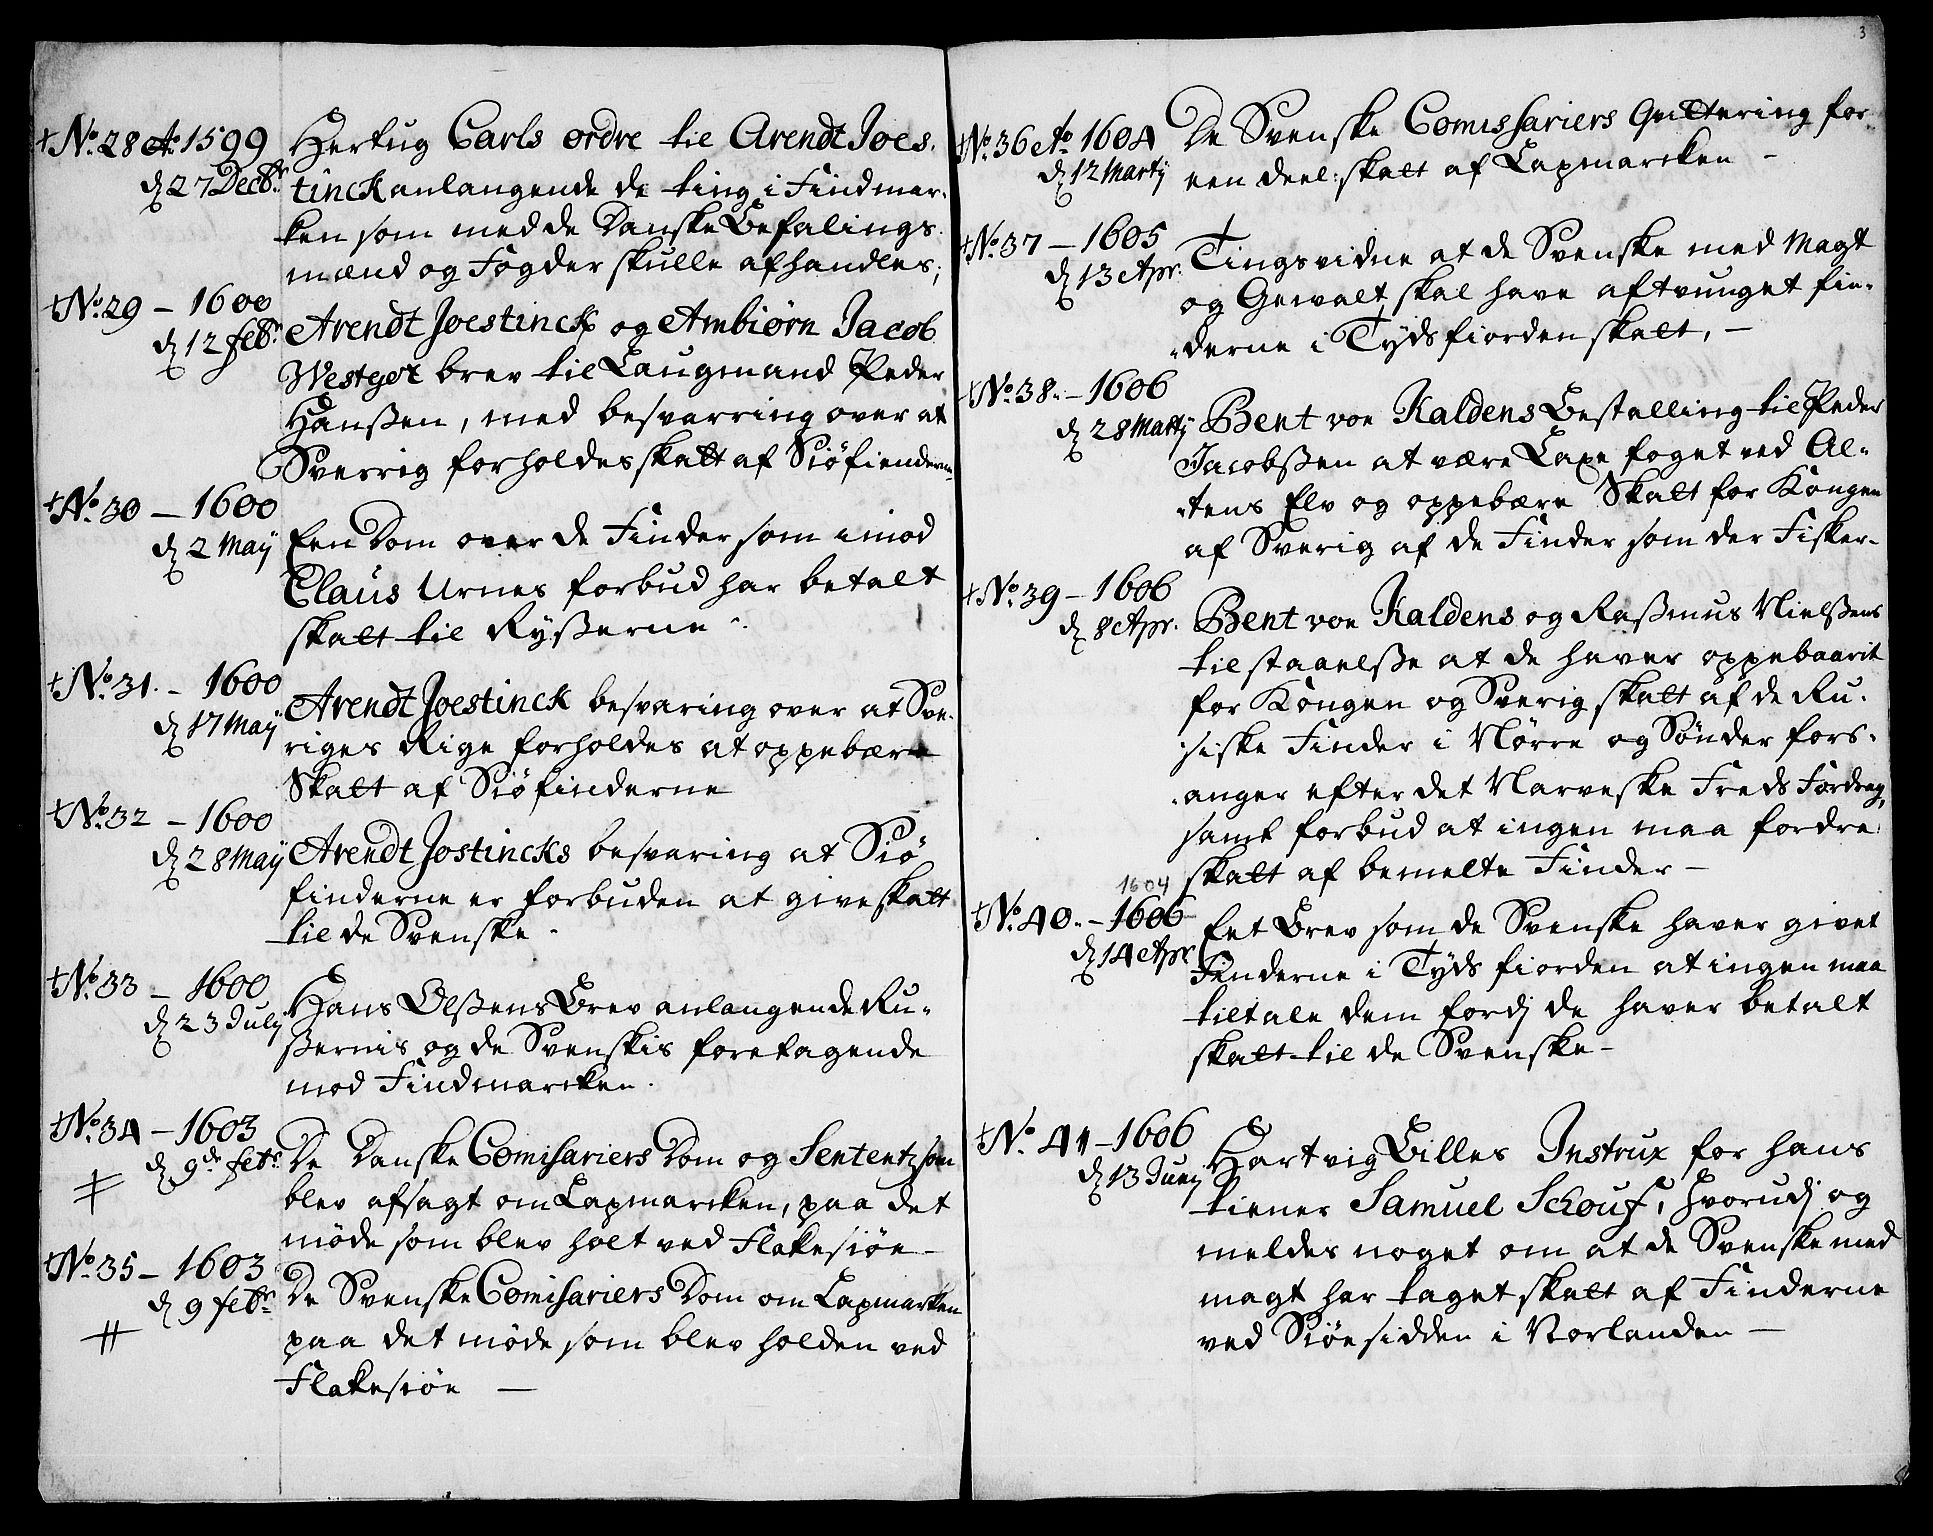 +No. 28 Ao. 1599
d 27 Decbr.
Hertug Carls ordre til Arendt Joes.
tinck anlangende de ting i Findmar-
ken som med de Danske Befalings
mænd og Fogder skulle afhandles;
+No. 29 – 1600
d 12 febr.
Arendt Joestinck og Ambiørn Jacob
Westgot brev til Laugmand Peder
Hanßen, med besvarring over at
Sverrig forholdes skatt af Siøfienderne
+No. 30 – 1600
d 2 Maÿ
Een Dom over de Finder som imod
Claus Urnes forbud har betalt
skatt til Ryßerne.
+No. 31. – 1600
d 17 Maÿ
Arendt Joestinck besvaring over at Sve-
riges Rige forholdes at oppebære
Skatt af Siøfinderne
+No. 32 – 1600
d 28 Maÿ
Arendt Jostincks besvaring at Siø
finderne er forbuden at give skatt
til de Svenske.
+No. 33 – 1600
d 23 Julÿ
Hans Olßens Brev anlangende Ru-
ßernis og de Svenskis foretagende
mod Findmarcken.
+No. 34 – 1603
d 9de febr.
De Danske Comisariers Dom og Sententz som
blev afsagt om Lapmarcken, paa det
møde som blev holt ved Flakesiøe –
+No. 35 – 1603
d 9 febr.
De Svenske Comisariers Dom om Lapmarken
paa det møde som blev holden ved
Flakesiøe –
3
+No. 36 Ao. 1604
d 12 Martÿ
De Svenske Comissariers Qvittering for
een deel: skatt af Lapmarcken –
+No. 37 – 1605
d 13 Apr.
Tingsvidne at de Svenske med Magt
og Gewalt skal have aftvunget fin-
-derne i Tydsfiorden skatt, –
+No. 38. – 1606
d 28 Martÿ
Bent von Kaldens Bestalling til Peder
Jacobßen at være Laxe foget ved Al-
-tens Elv og oppebære Skatt for Kongen
af Sverig af de Finder som der Fisker-
+No. 39 – 1606
d 8 Apr.
Bent von Kaldens og Raßmus Nielßens
tilstaaelße at de haver oppebaarit
for Kongen og Sverig skatt af de Ru-
-siske Finder i Nørre og Sønder fors-
-anger efter det Narveske Freds Fordrag,
samt forbud at ingen maa fordre
skatt af bemelte Finder –
1604
+No. 40. – 1606
d 14 Apr.
Eet Brev som de Svenske haver givet
Finderne i Tyds fiorden at ingen maa
tiltale dem fordj de haver betalt
skatt til de Svenske –
+No. 41 – 1606
d 13 Junÿ
Hartvig Billes Instrux for hans
tiener Samuel Schouf, hvorudj og
meldes noget om at de Svenske med
magt har taget skatt af Finderne
ved Siøesidden i Norlanden –